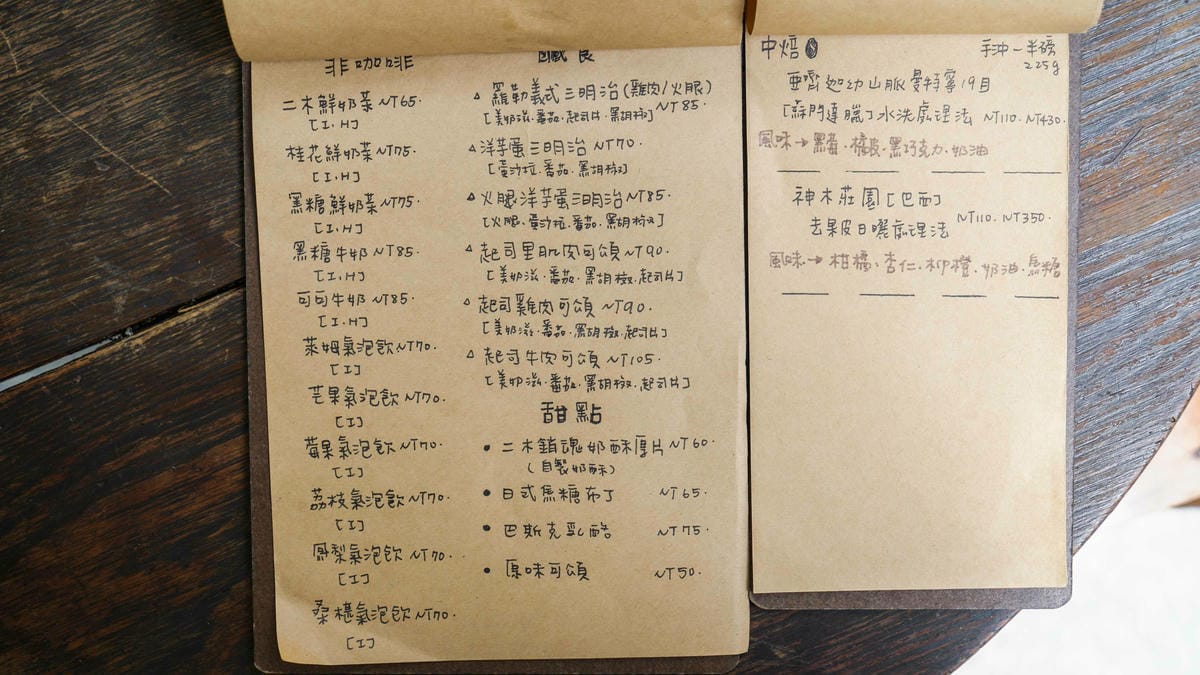 非咖啡
二木鮮奶茶 NT65.
[I.H]
桂花鮮奶茶 NT75.
[I.H]
黑糖鮮奶茶 NT75.
[I.H]
黑糖牛奶 NT85.
[I.H]
可可牛奶 NT85.
[I.H]
萊姆氣泡飲 NT70.
[I]
芒果氣泡飲 NT70.
[I]
莓果氣泡飲 NT70.
[I]
荔枝氣泡飲 NT70.
[I]
鳳梨氣泡飲 NT70.
[I]
桑椹氣泡飲 NT70.
[I]
鹹食
△ 羅勒義式三明治(雞肉/火腿)
[美奶滋.番茄.起司片.黑胡椒] NT85.
△ 洋芋蛋三明治 NT70.
[蛋沙拉.番茄.黑胡椒]
△ 火腿洋芋蛋三明治 NT85.
[火腿.蛋沙拉.番茄.黑胡椒]
△ 起司里肌肉可頌 NT90.
[美奶滋.番茄.黑胡椒.起司片]
△ 起司雞肉可頌 NT90.
[美奶滋.番茄.黑胡椒.起司片]
△ 起司牛肉可頌 NT105.
[美奶滋.番茄.黑胡椒.起司片]
甜點
• 二木銷魂奶酥厚片 NT60.
(自製奶酥)
• 日式焦糖布丁 NT65.
• 巴斯克乳酪 NT75.
• 原味可頌 NT50.
中焙 手沖 - 半磅
225g
亞齊迦幼山脈曼特寧19目
[蘇門達臘] 水洗處理法 NT110. NT430.
風味→黑莓.橘皮.黑巧克力.奶油
神木莊園[巴西]
NT110. NT350.
去果皮日曬處理法
風味→柑橘.杏仁.柳橙.奶油.焦糖